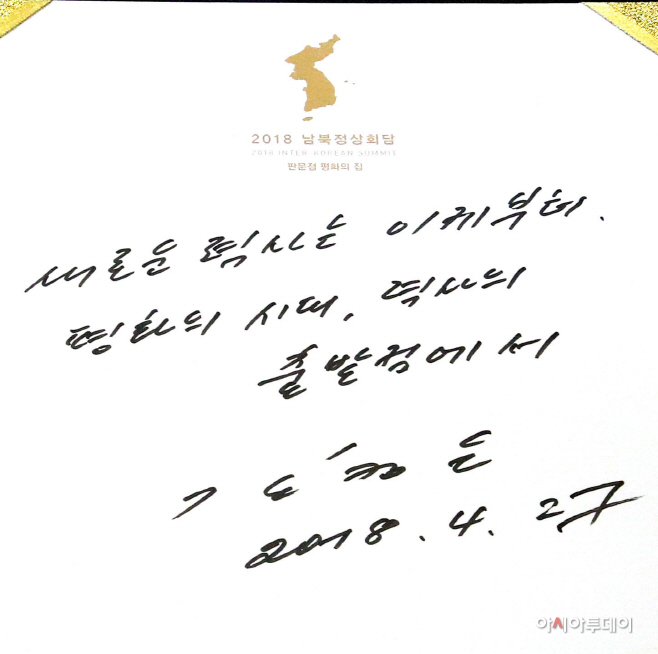 2018 남북정상회담
2018 INTER-KOREAN SUMMIT
판문점 평화의 집
새로운 력사는 이제부터.
평화의 시대, 력사의
출발점에서
김정은
2018. 4. 27
아시아투데이